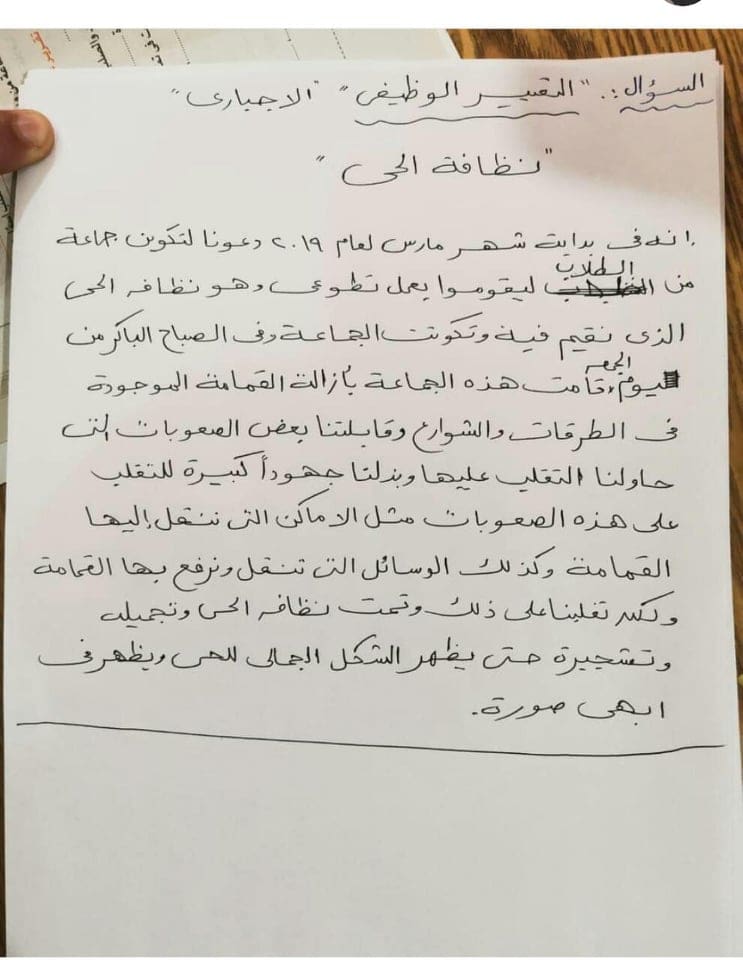 السؤال :. "التعبير الوظيفى" "الاجبارى"
"نظافة الحى"
انه فى بداية شهر مارس لعام ٢٠١٩ دعونا لتكوين جماعة
من الطلاب ليقوموا بعمل تطوعى وهو نظافه الحى
الذى نقيم فيه وتكونت الجماعة وفى الصباح الباكر من
يوم الجمعه قامت هذه الجماعة بأزالة القمامة الموجودة
فى الطرقات والشوارع وقابلتنا بعض الصعوبات التى
حاولنا التغلب عليها وبذلنا جهوداً كبيرة للتغلب
على هذه الصعوبات مثل الاماكن التى ننقل إليها
القمامة وكذلك الوسائل التى تنقل ونرفع بها القمامة
ولكن تغلبنا على ذلك وتمت نظافه الحى وتجميله
وتشجيرة حتى يظهر الشكل الجمالى للحى ويظهر فى
ابهى صورة.